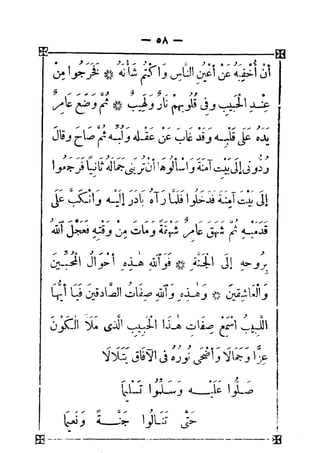 — ٥٨ —
أَنْ أُخْفِيَهُ عَنْ أَعْيُنِ النَّاسِ وَأَكْتُمَ شَأْنَهُ * فَخَرَجُوا مِنْ
عِنْدِ الْحَبِيبِ وَفِي قُلُوبِهِمْ نَارٌ وَلَهِيبٌ * ثُمَّ وَضَعَ عَامِرٌ
يَدَهُ عَلَى قَلْبِهِ وَقَدْ غَابَ عَنْ عَقْلِهِ وَلُبِّهِ ثُمَّ صَاحَ وَقَالَ
رُدُّونِي إِلَى بَيْتِ آمِنَةَ وَاسْأَلُوهَا أَنْ تُرِيَنِي جَمَالَهُ ثَانِيًا فَرَجَعُوا
إِلَى بَيْتِ آمِنَةَ فَدَخَلُوا فَلَمَّا رَآهُ بَادَرَ إِلَيْهِ وَانْكَبَّ عَلَى
قَدَمَيْهِ ثُمَّ شَهَقَ عَامِرٌ شَهْقَةً وَمَاتَ مِنْ وَقْتِهِ فَعَجَّلَ اللهُ
بِرُوحِهِ إِلَى الْجَنَّةِ * فَوَاللهِ هَذِهِ أَحْوَالُ الْمُحِبِّينَ
وَالْعَاشِقِينَ * وَهَذِهِ وَاللهِ صِفَاتُ الصَّادِقِينَ فَيَا أَيُّهَا
اللَّبِيبُ اسْمَعْ صِفَاتِ هَذَا الْحَبِيبِ الَّذِي مَلَأَ الْكَوْنَ
عِزًّا وَجَمَالًا وَأَضْحَى نُورُهُ فِي الْآفَاقِ يَتَلَالَا
صَلُّوا عَلَيْهِ وَسَلِّمُوا تَسْلِيمًا
حَتَّى تَنَالُوا جَنَّةً وَنَعِيمًا